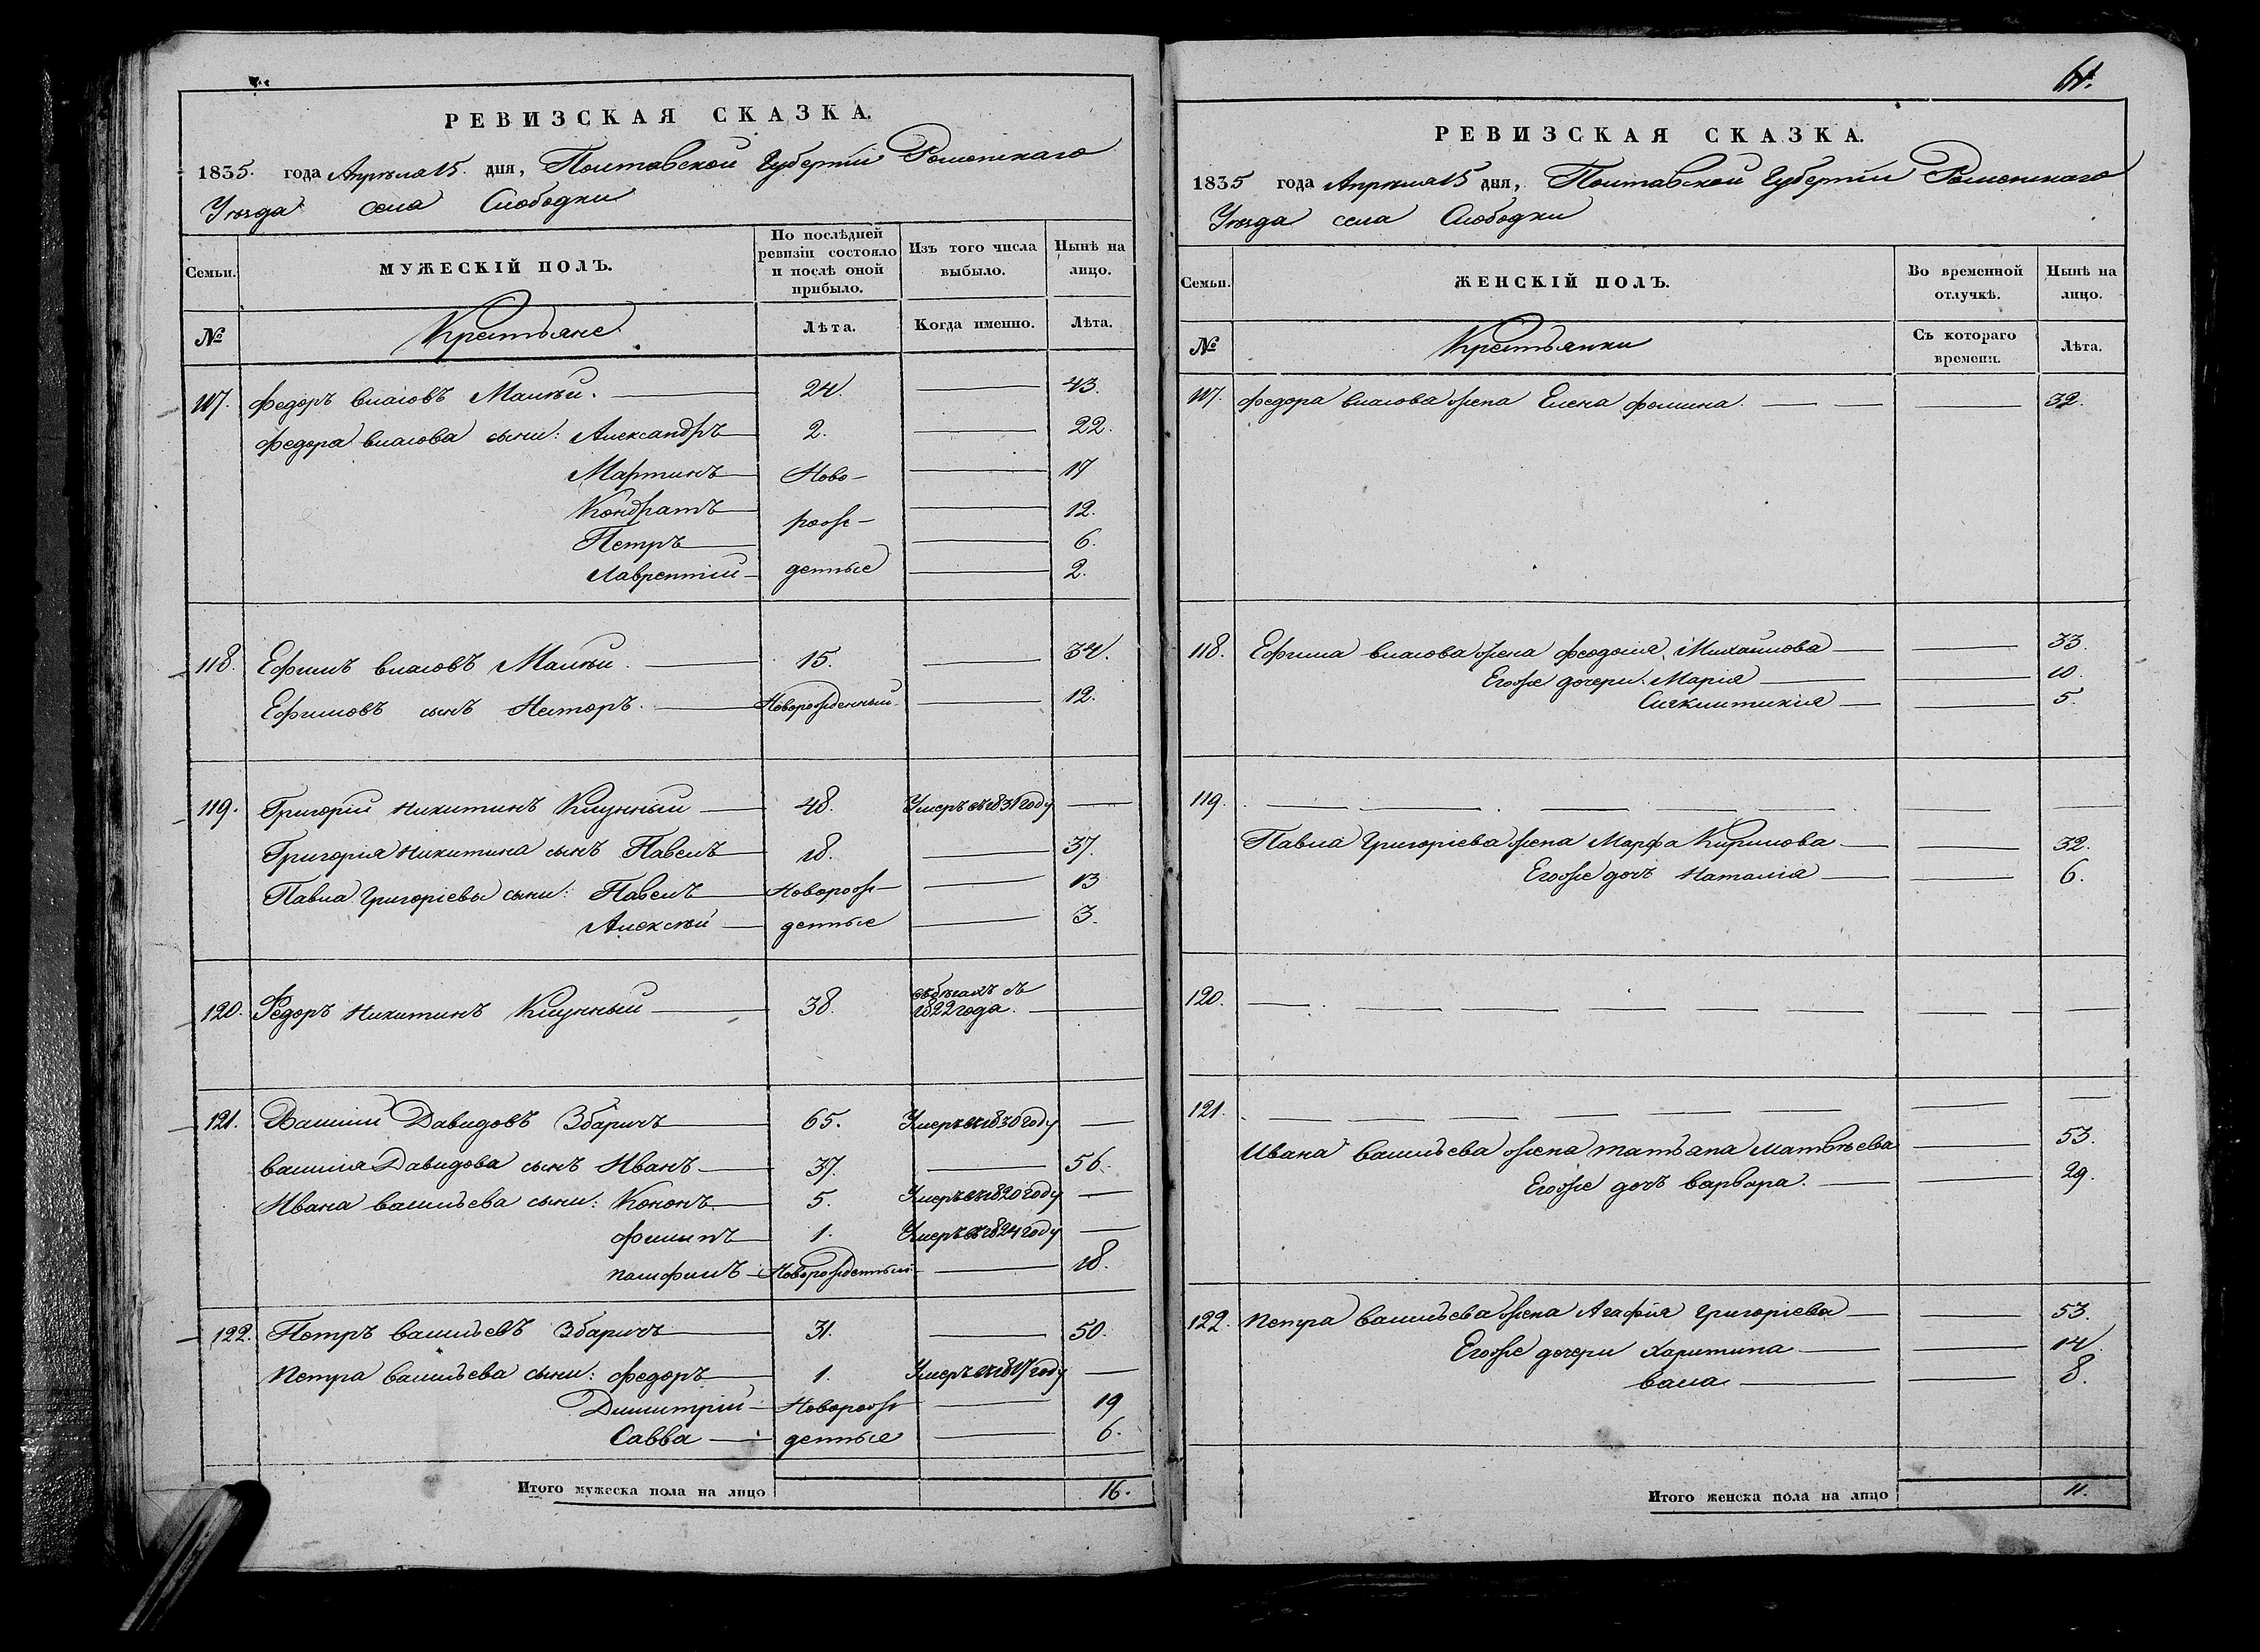 РЕВИЗСКАЯ СКАЗКА.
1835. года Апрѣля 15. дня, Полтавской Губерніи Роменскаго
Уѣзда села Слободки
Семьи. МУЖЕСКІЙ ПОЛЪ. По послѣдней ревизіи состояло и послѣ оной прибыло. Изъ того числа выбыло. Нынѣ на лицо.
№ Крестьяне Лѣта. Когда именно. Лѣта.
117. Федоръ Власовъ 24. 43.
Федора Власова сыны: Александръ 2. 22.
Мартинъ Ново- 17
Кондратъ 12.
рож-
Петръ 6.
Лаврентій денные 2.
118. Ефимъ Власовъ 15. 34.
Ефимовъ сынъ Несторъ. Новорожденный 12.
119. Григорій Никитинъ 48. Умеръ въ 1831 году
Григорія Никитина сынъ Павелъ 18. 37.
Павла Григорьевы сыны: Павелъ Новорож- 13
Алексѣй денные 3.
120. Федоръ Никитинъ 38. въ бѣгахъ съ
1822 года.
121. Василій Давидовъ Збаричъ 65. Умеръ въ 1830 году
Василія Давидова сынъ Иванъ 37. 56.
Ивана Васильева сыны: Кононъ 5. Умеръ въ 1820 году
Филипъ 1. Умеръ въ 1824 году
Новорожденный 18.
122. Петръ Васильевъ Збаричъ 31. 50.
Петра Васильева сыны: Федоръ 1. Умеръ въ 1817 году
Димитрій Новорож 19
Савва денные 6.
Итого мужеска пола на лицо 16.
61.
РЕВИЗСКАЯ СКАЗКА.
1835 года Апрѣля 15 дня, Полтавской Губерніи Роменскаго
Уѣзда села Слободки
Семьи. ЖЕНСКІЙ ПОЛЪ. Во временной отлучкѣ. Нынѣ на лицо.
№ Крестьянки Съ котораго времени. Лѣта.
117. Федора Власова жена Елена Фомина. 32.
118. Ефима Власова жена Феодосія Михайлова 33.
Егоже дочери: Марія 10.
5.
119.
Павла Григоріева жена Марфа Кирилова 32.
Егоже дочъ Наталія 6.
120.
121.
Ивана Васильева жена Татьяна Матвѣева 53.
Егоже дочъ Варвара. 29.
122. Петра Васильева жена Агафія Григоріева 53.
Егоже дочери Харитина 14
Васа 8.
Итого женска пола на лицо 11.